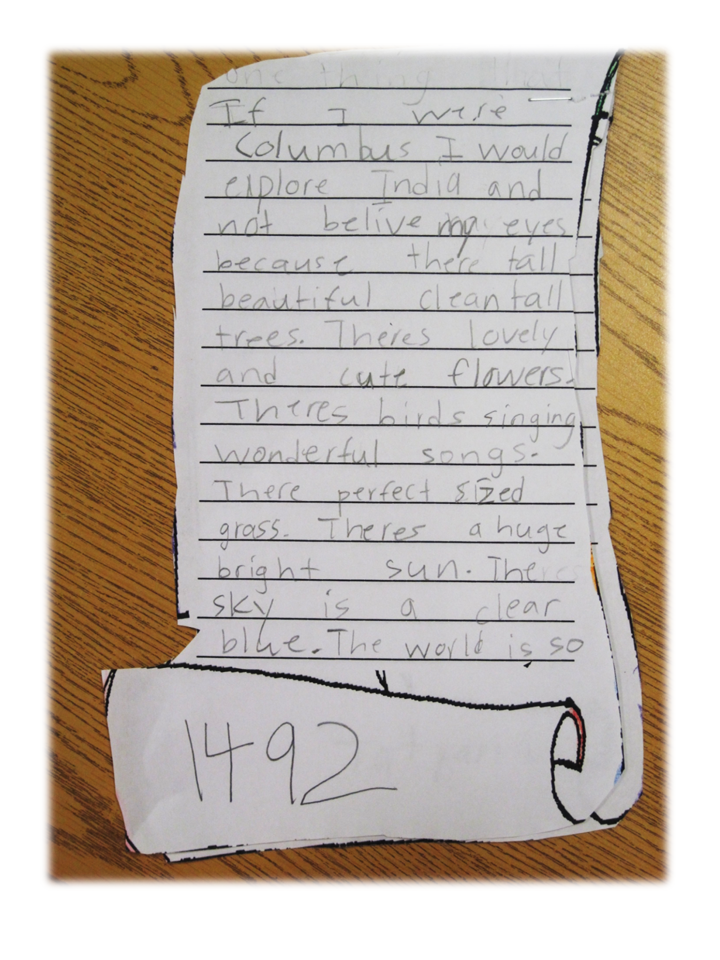 one thing
If I were
Columbus I would
explore India and
not belive my eyes
because there tall
beautiful clean tall
trees. Theres lovely
and cute flowers.
Theres birds singing
wonderful songs.
There perfect sized
grass. Theres a huge
bright sun. The
sky is a clear
blue. The world is so
1492